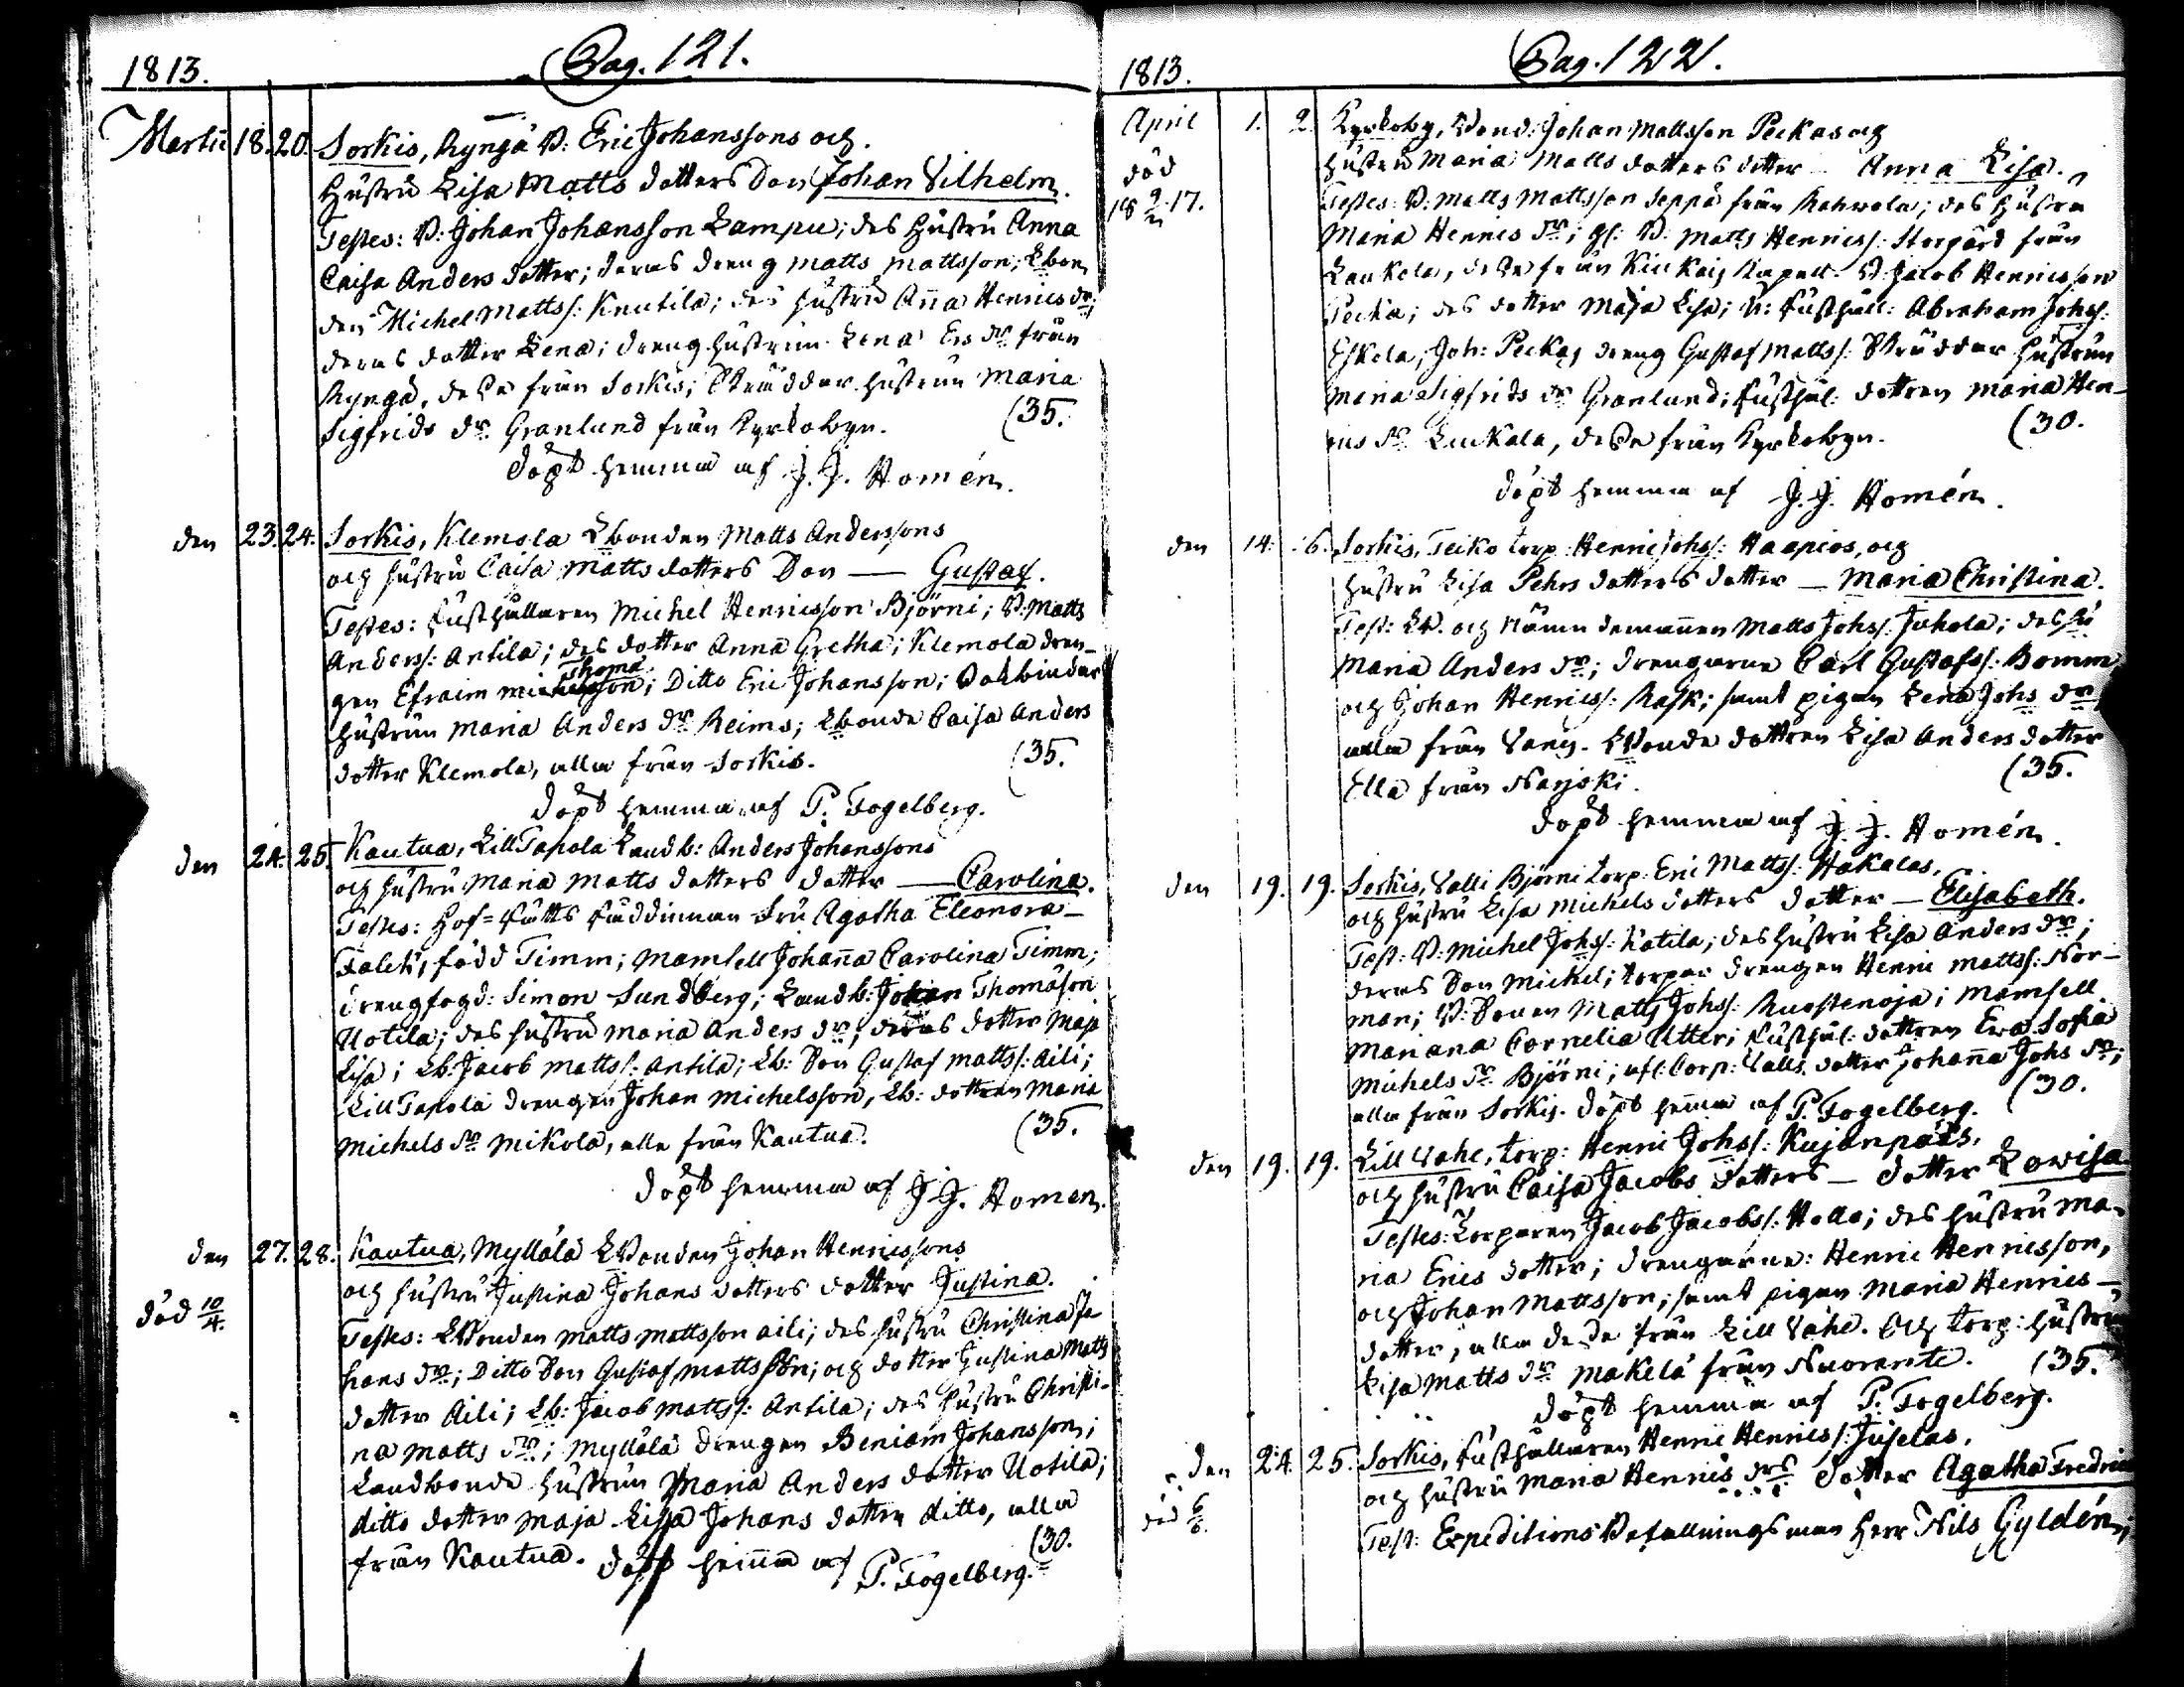 1813. Pag. 121.
Martii 18. 20. Sorkis, Ryngä B: Eric Johanssons och
Hustru Lisa Matts dotters Son Johan Vilhelm.
Testes: B: Johan Johansson Lampu; des hustru Anna
Caisa Anders dotter; deras dreng Matts Mattsson; Lbon
den Michel Mattss: Knutila; des hustru Ana Henrics dr;
deras dotter Lena; dreng hustrun Lena Ers dr från
Ryngä, desse från Sorkis; Skräddar hustrun Maria
Sigfrids dr Granlund från Kyrkobyn. (35.
döpt hemma af J. J. Homén.
den 23. 24. Sorkis, Klemola Lbonden Matts Anderssons
och hustru Caisa Matts dotters Son — Gustaf.
Testes: Rusthållaren Michel Henricsson Björni; B: Matts
Anderss: Antila; des dotter Anna Gretha; Klemola dren-
Thoma
gen Efraim Michelsson; Ditto Eric Johansson;
hustrun Maria Anders dr Reims; Lbonde Caisa Anders
dotter Klemola, alla från Sorkis. (35.
döpt hemma af P. Fogelberg.
den 24. 25. Kautua, Lill Tapola Landb: Anders Johanssons
och hustru Maria Matts dotters dotter — Carolina.
Testes: Hof-Rätts Rådinnan Fru Agatha Eleonora
Falck, född Timm; Mamsell Johana Carolina Timm;
drengfogd: Simon Sundberg; Landb: Johan Thomason
Uotila; des hustru Maria Anders dr; deras dotter Maja
Lisa; Lb: Jacob Mattss: Antila; Lb: Son Gustaf Mattss: Aili;
Lill Tapola drengen Johan Michelsson, Lb: dottren Maria
Michels dr Mikola, alla från Kautua. (35.
döpt hemma af J. J. Homen.
den 27. 28. Kautua, Myllälä LBonden Johan Henricssons
och hustru Justina Johans dotters dotter Justina.
död 10/4. Testes: LBonden Matts Mattsson Aili; des hustru Christina Jo-
hans dr; Ditto Son Gustaf Mattsson; och dotter Justina Matts
dotter Aili; Lb: Jacob Mattss: Antila; des hustru Christi-
na Matts dr; Myllälä drengen Beniam Johansson;
Landbonde hustrun Maria Anders dotter Uotila;
ditto dotter Maja Lisa Johans dotter ditto, alla
från Kautua. (30.
döpt hema af P. Fogelberg.
1813. Pag. 122.
April 1. 2. Kyrkoby, Bond: Johan Mattsson Peckas och
hustru Maria Matts dotters dotter — Anna Lisa.
död
Testes: B: Matts Mattsson Seppä från Kahvola; des hustru
Maria Henrics dr; gl: B: Matts Henricss: Storgård från
Laukola, desse från Kiukais Kapell. B: Jacob Henricsson
Pecka; des dotter Maja Lisa; Rusthåll: Abraham Johss:
Eskola; Joh: Peckas dreng Gustaf Mattss: Skräddar hustrun
Maria Sigfrids dr Granlund; Rusthål: dottren Maria Hen-
rics dr Laukala, desse från Kyrkobyn. (30.
döpt hemma af J. J. Homén.
den 14. 16. Sorkis, Teiko torp: Henric Johss: Haapios, och
hustru Lisa Pehrs dotters dotter — Maria Christina.
Test: LB. och Nämndemannen Matts Johs: Juhola; des hu
Maria Anders dr; drengarne Carl Gustafss: Bomm
och Johan Henricss: Rask; samt pigan Lena Johs dr
alla från Vang. LBonde dottren Lisa Anders dotter
Ella från Narjoki. (35.
döpt hemma af J. J. Homén.
den 19. 19. Sorkis, Valli Björni torp: Eric Mattss: Hakalas,
och hustru Lisa Michels dotters dotter — Elisabeth.
Test: B: Michel Johss: Katila; des hustru Lisa Anders dr;
deras Son Michel; torpar drengen Henric Mattss: Nor-
man; B: Sonen Matts Johss: Ruostenoja; Mamsell
Mariana Cornelia Utter; Rusthål: dottren Eva Sofia
Michels dr Björni; afl: Corp: Valls dotter Johana Johs dr;
alla från Sorkis. döpt hema af P. Fogelberg. (30.
den 19. 19. Lill Vahe, torp: Henric Johss: Kujanpääs,
och hustru Caisa Jacobs dotters — dotter Lovisa
Testes: Torparen Jacob Jacobss: Hollo; des hustru Ma-
ria Erics dotter; drengarne: Henric Henricsson,
och Johan Mattsson; samt pigan Maria Henrics—
dotter, alla desse från Lill Vahe. Och torp: hustru
Lisa Matts dr Makelä från Nuoranti. (35.
döpt hemma af P. Fogelberg.
den 24. 25. Sorkis, Rusthållaren Henric Henricss: Juselas,
och hustru Maria Henrics drs dotter Agatha Fredrica
död 6/6. Test: Expeditions Befallningsman Herr Nils Gyldén,